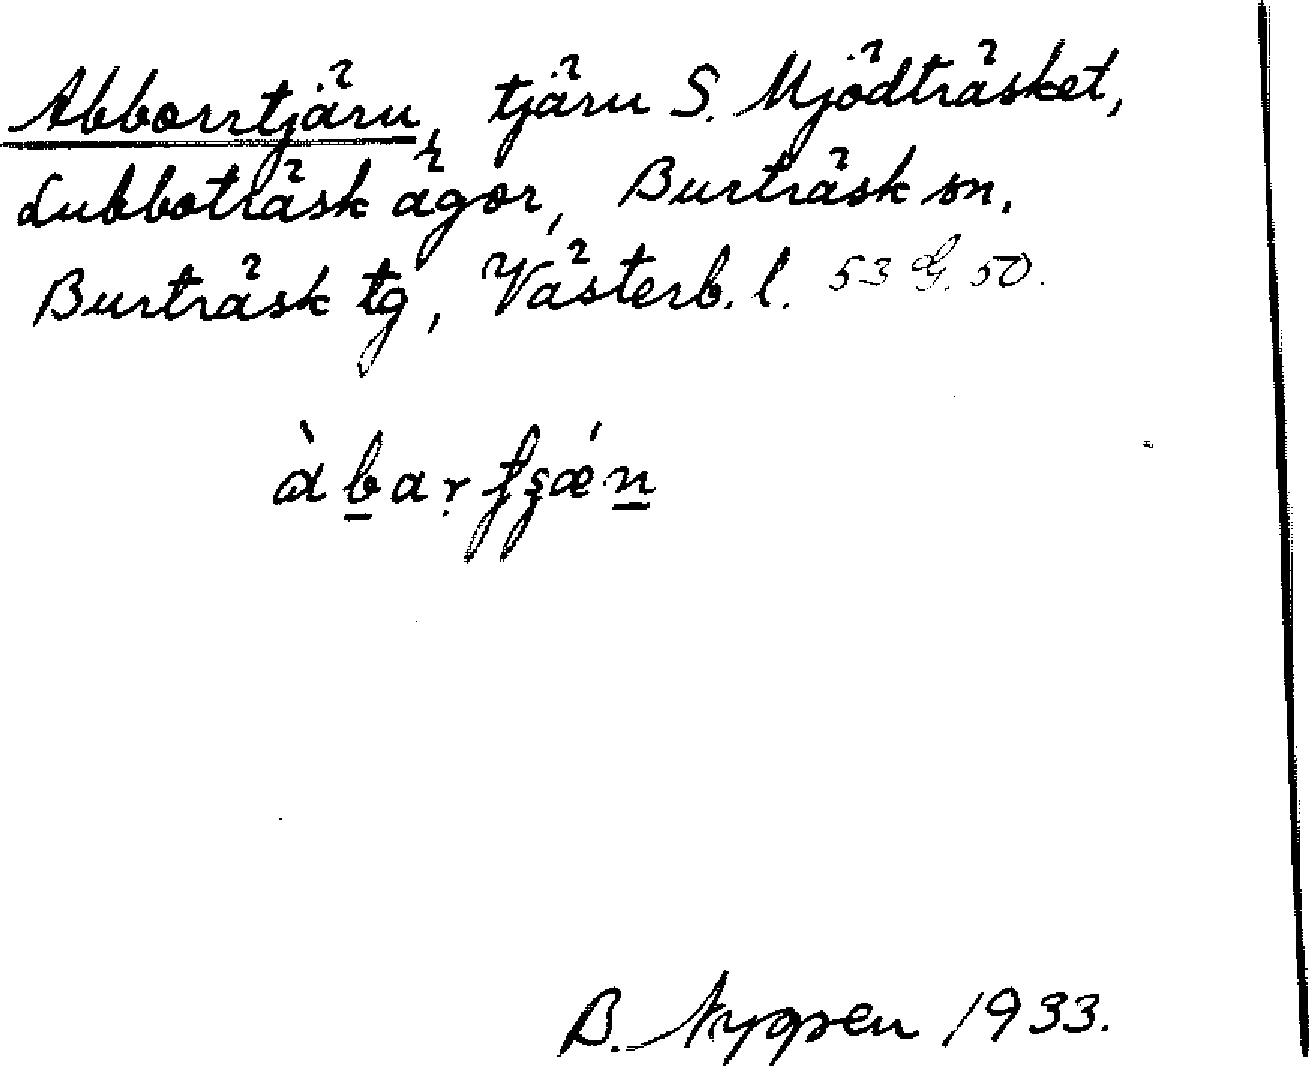 Abborrtjärn, tjärn S. Mjödträsket,
Lubboträsk ägor, Burträsk sn.
Burträsk tg, Västerb. l. 53 G. 50.
B. Nygren 1933.